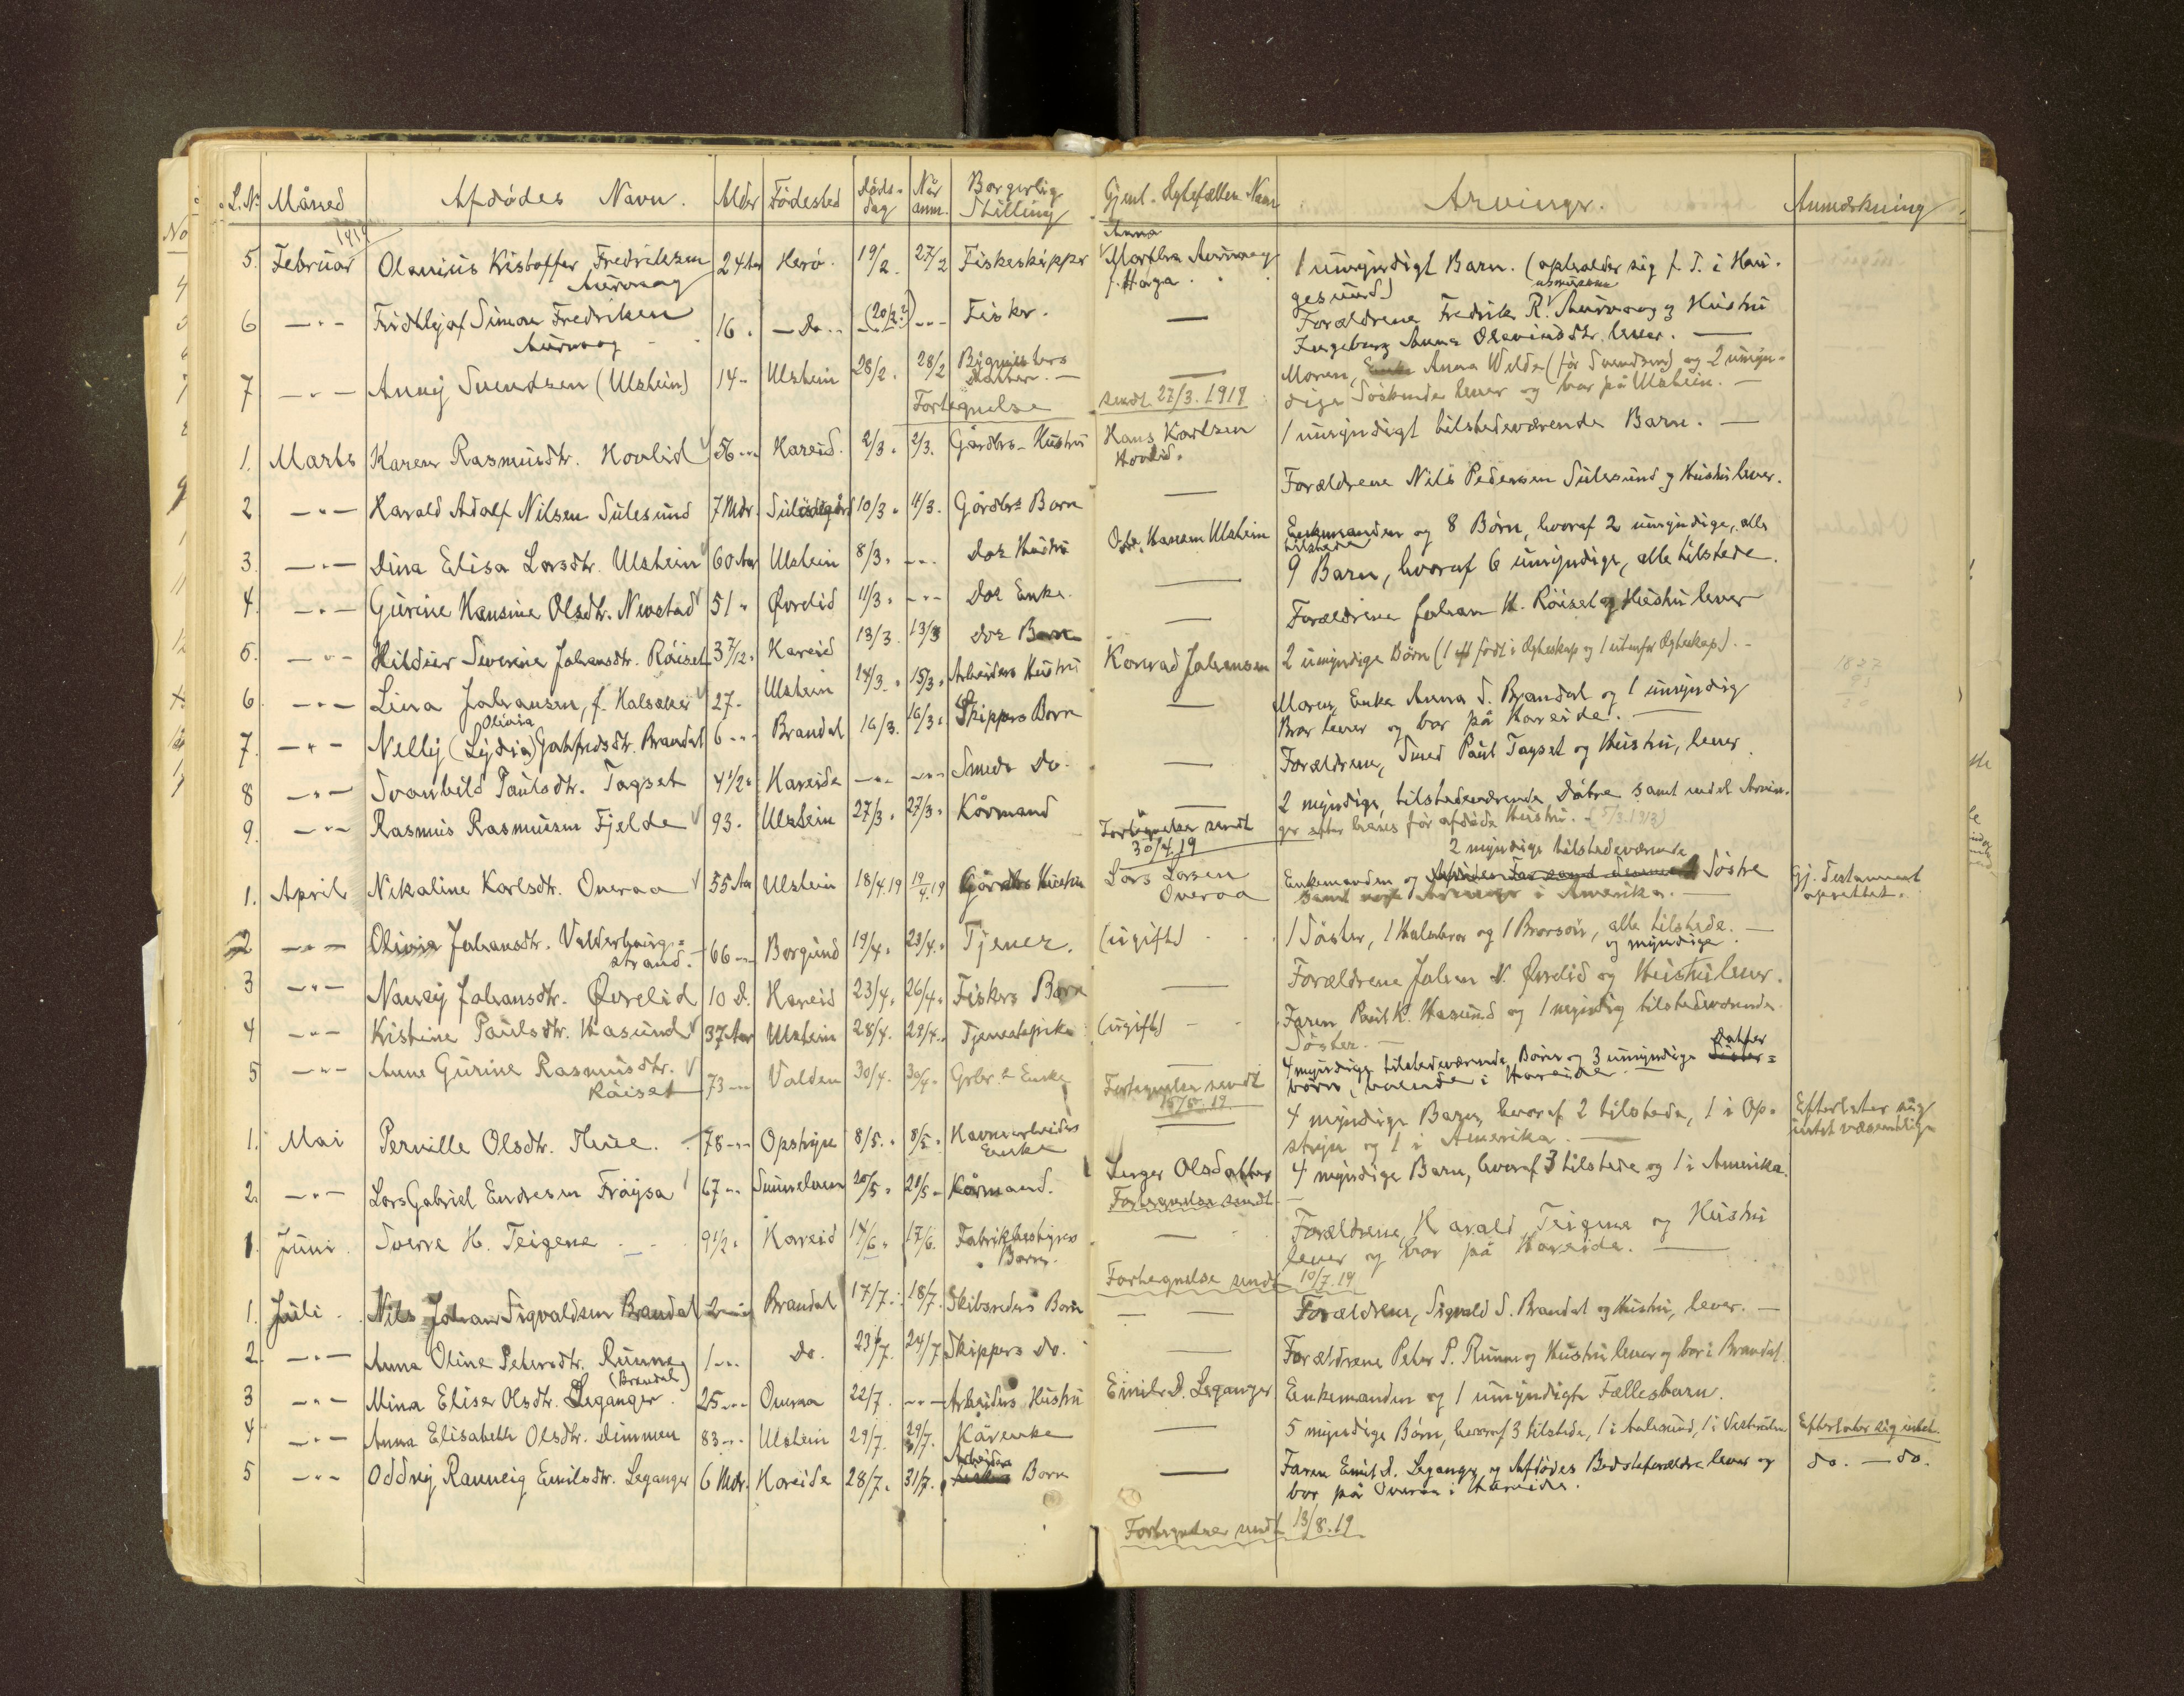 L.N. Måned Afdødes Navn. Alder Fødested Døds-dag Når anm. Borgerlig Stilling Gjenl. Ægtefælles Navn Arvinger. Anmærkning
1919
5. Februar Olanius Kristoffer Fredriksen Aurvaag 24 Aar Herø. 19/2. 27/2 Fiskeskipper Anna Martha Aurvaag f. Haga. 1 umyndigt Barn. (opholder sig f. T. i Haugesund)
6 —"— Fridthjof Simon Fredriksen Aurvaag 16 " — Do — (20/2?) —"— Fisker. — Forældrene Fredrik R. Aurvaag og Hustru Ingeborg Anna Olavinsdtr. lever. —
7 —"— Anny Svendsen (Ulstein) 14 " Ulstein 28/2. 28/2 Bygmesters Datter. — — Moren, Anna Welde (før Svendsen) og 2 umyndige Søskende lever og bor på Ulstein. —
Fortegnelse sendt 27/3. 1919
1. Marts Karen Rasmusdtr. Hovlid 56 " Hareid. 2/3. 2/3. Gårdbrs. Hustru Hans Karlsen Hovlid. 1 umyndigt tilstedeværende Barn. —
2 —"— Harald Adolf Nilsen Sulesund 7 Mdr. 10/3. 11/3. Gårdbrs Barn — Forældrene Nils Pedersen Sulesund og Hustru lever.
3. —"— Dina Elisa Larsdtr. Ulstein 60 Aar Ulstein 8/3. —"— Dos Hustru Hansen Ulstein Enkemanden og 8 Børn, hvoraf 2 umyndige, alle tilstede
4. —"— Gurine Hansine Olsdtr. Nevstad 51 " Øvrelid 11/3. —"— Dos Enke. — 9 Børn, hvoraf 6 umyndige, alle tilstede.
5. —"— Hildur Severine Johansdtr. Røiset 3 7/12 " Hareid 13/3. 13/3 Dos Barn — Forældrene Johan H. Röiset og Hustru lever
6 —"— Lina Johansen, f. Halsaker 27. Ulstein 14/3. " 15/3. Arbeiders Hustru Konrad Johansen 2 umyndige Børn (1 født i Ægteskap og 1 utenfor Ægteskap). —
7. —"— Nelly (Lydia) Olivia Gotfredsdtr. Brandal 6 —"— Brandal 16/3. 16/3. Skippers Barn — Moren, Enke Anna S. Brandal og 1 umyndig Bror lever og bor på Hareide. —
8 —"— Svanhild Paulsdtr. Tagset 4 1/2 " Hareide —"— —"— Smeds Do. — Forældrene, Smed Paul Tagset og Hustru, lever.
9. —"— Rasmus Rasmusen Fjelde 93. Ulstein 27/3. 27/3. Kårmand — 2 myndige, tilstedeværende Døtre samt endel Arvinger efter hans før afdøde Hustru. – (5/3.1913)
Fortegnelse sendt 30/4.19
1. April Nikaline Karlsdtr. Overaa 55 Aar Ulstein 18/4.19 19/4.19 Gårdbrs Hustru Lars Larsen Overaa Enkemanden og 2 myndige tilstedeværende Søstre i Amerika. — Gj. Testament oprettet.
2 —"— Olivia Johansdtr. Valderhaugstrand. 66 —"— Borgund 19/4. 23/4. Tjener. (ugift) 1 Søster, 1 Halvbror og 1 Brorsøn, alle tilstede. og myndige —
3 —"— Nancy Johansdtr. Øvrelid 10 D. Hareid 23/4. 26/4. Fiskers Barn — Forældrene Johan N. Øvrelid og Hustru lever.
4 —"— Kristine Paulsdtr. Hasund 37 Aar Ulstein 28/4. 29/4. Tjenestepike (ugift) — Faren Paul K. Hasund og 1 myndig tilstedeværende Søster. —
5 —"— Anne Gurine Rasmusdtr. Röiset 73 —"— Volden 30/4. 30/4. Grbr.s Enke — 4 myndige tilstedeværende Børn og 3 umyndige Datterbørn, boende i Hareide.
Fortegnelse sendt 15/5.19.
1. Mai Pernille Olsdtr. 78 —"— Opstryn 8/5. 8/5. Havnearbeiders Enke — 4 myndige Børn, hvoraf 2 tilstede, 1 i Opstryn og 1 i Amerika. — Efterlater sig intet væsentlig
2. —"— Lars Gabriel Endresen Frøysa 67 —"— Sunnelven 20/5. 21/5. Kårmand. Olsdatter 4 myndige Børn, hvoraf 3 tilstede og 1 i Amerika.
Fortegnelse sendt —
1. Juni Sverre H. Teigene 9 1/2 " Hareid 14/6. 17/6. Fabrikbestyrers Barn. — Forældrene, Harald Teigene og Hustru lever og bor på Hareide. —
Fortegnelse sendt 10/7.19
1. Juli Nils Johan Sigvaldsen Brandal 2 Brandal 17/7. 18/7. Skibsreders Barn — Forældrene, Sigvald S. Brandal og Hustru, lever. —
2. —"— Anna Oline Petersdtr. Runne (Brandal) 1 —"— Do. 23/7. 24/7. Skippers Do. — Forældrene Peter P. Runne og Hustru lever og bor i Brandal.
3 —"— Mina Elise Olsdtr. Leganger 25 —"— Overaa 22/7. —"— Arbeiders Hustru Emil D. Leganger Enkemanden og 1 umyndigt Fællesbarn.
4 —"— Anna Elisabeth Olsdtr. Dimmen 83 —"— Ulstein 29/7. 29/7. Kårenke — 5 myndige Børn, hvoraf 3 tilstede, 1 i Aalesund, 1 i Efterlater sig intet.
5 —"— Oddny Ranneig Emilsdtr. Leganger 6 Mdr. Hareide 28/7. 31/7. Arbeiders Barn — Faren Emil D. Leganger og Afdødes Bedsteforældre lever og bor på Overaa i Hareide. do. — do.
Fortegnelser sendt 13/8.19